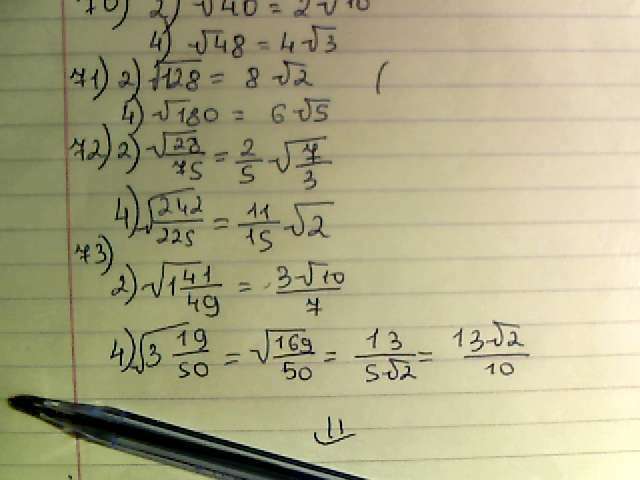 70) 2) √40 = 2√10
4) √48 = 4√3
71) 2) √128 = 8√2 (
4) √180 = 6√5
72) 2) √28/75 = 2/5 √7/3
4) √242/225 = 11/15 √2
73)
2) √1 41/49 = 3√10/7
4) √3 19/50 = √169/50 = 13/5√2 = 13√2/10